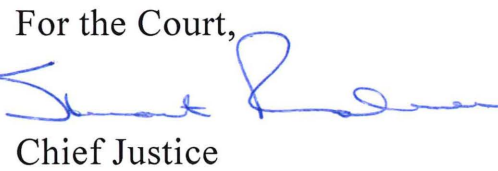 For the Court,
Chief Justice